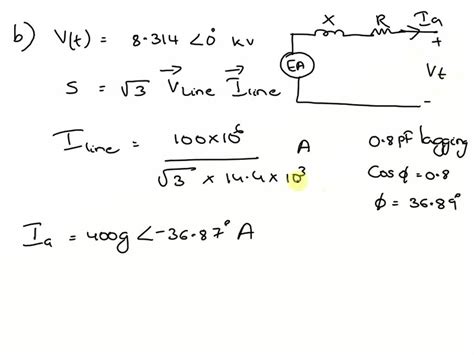 b) V(t) = 8.314 <0° kv
X R Ia
+
EA
Vt
-
S = √3 V Line I line
I line = 100×10⁶ / √3 × 14.4 × 10³ A
0.8 pf lagging
Cos ϕ = 0.8
ϕ = 36.89°
Ia = 4009 <-36.87° A